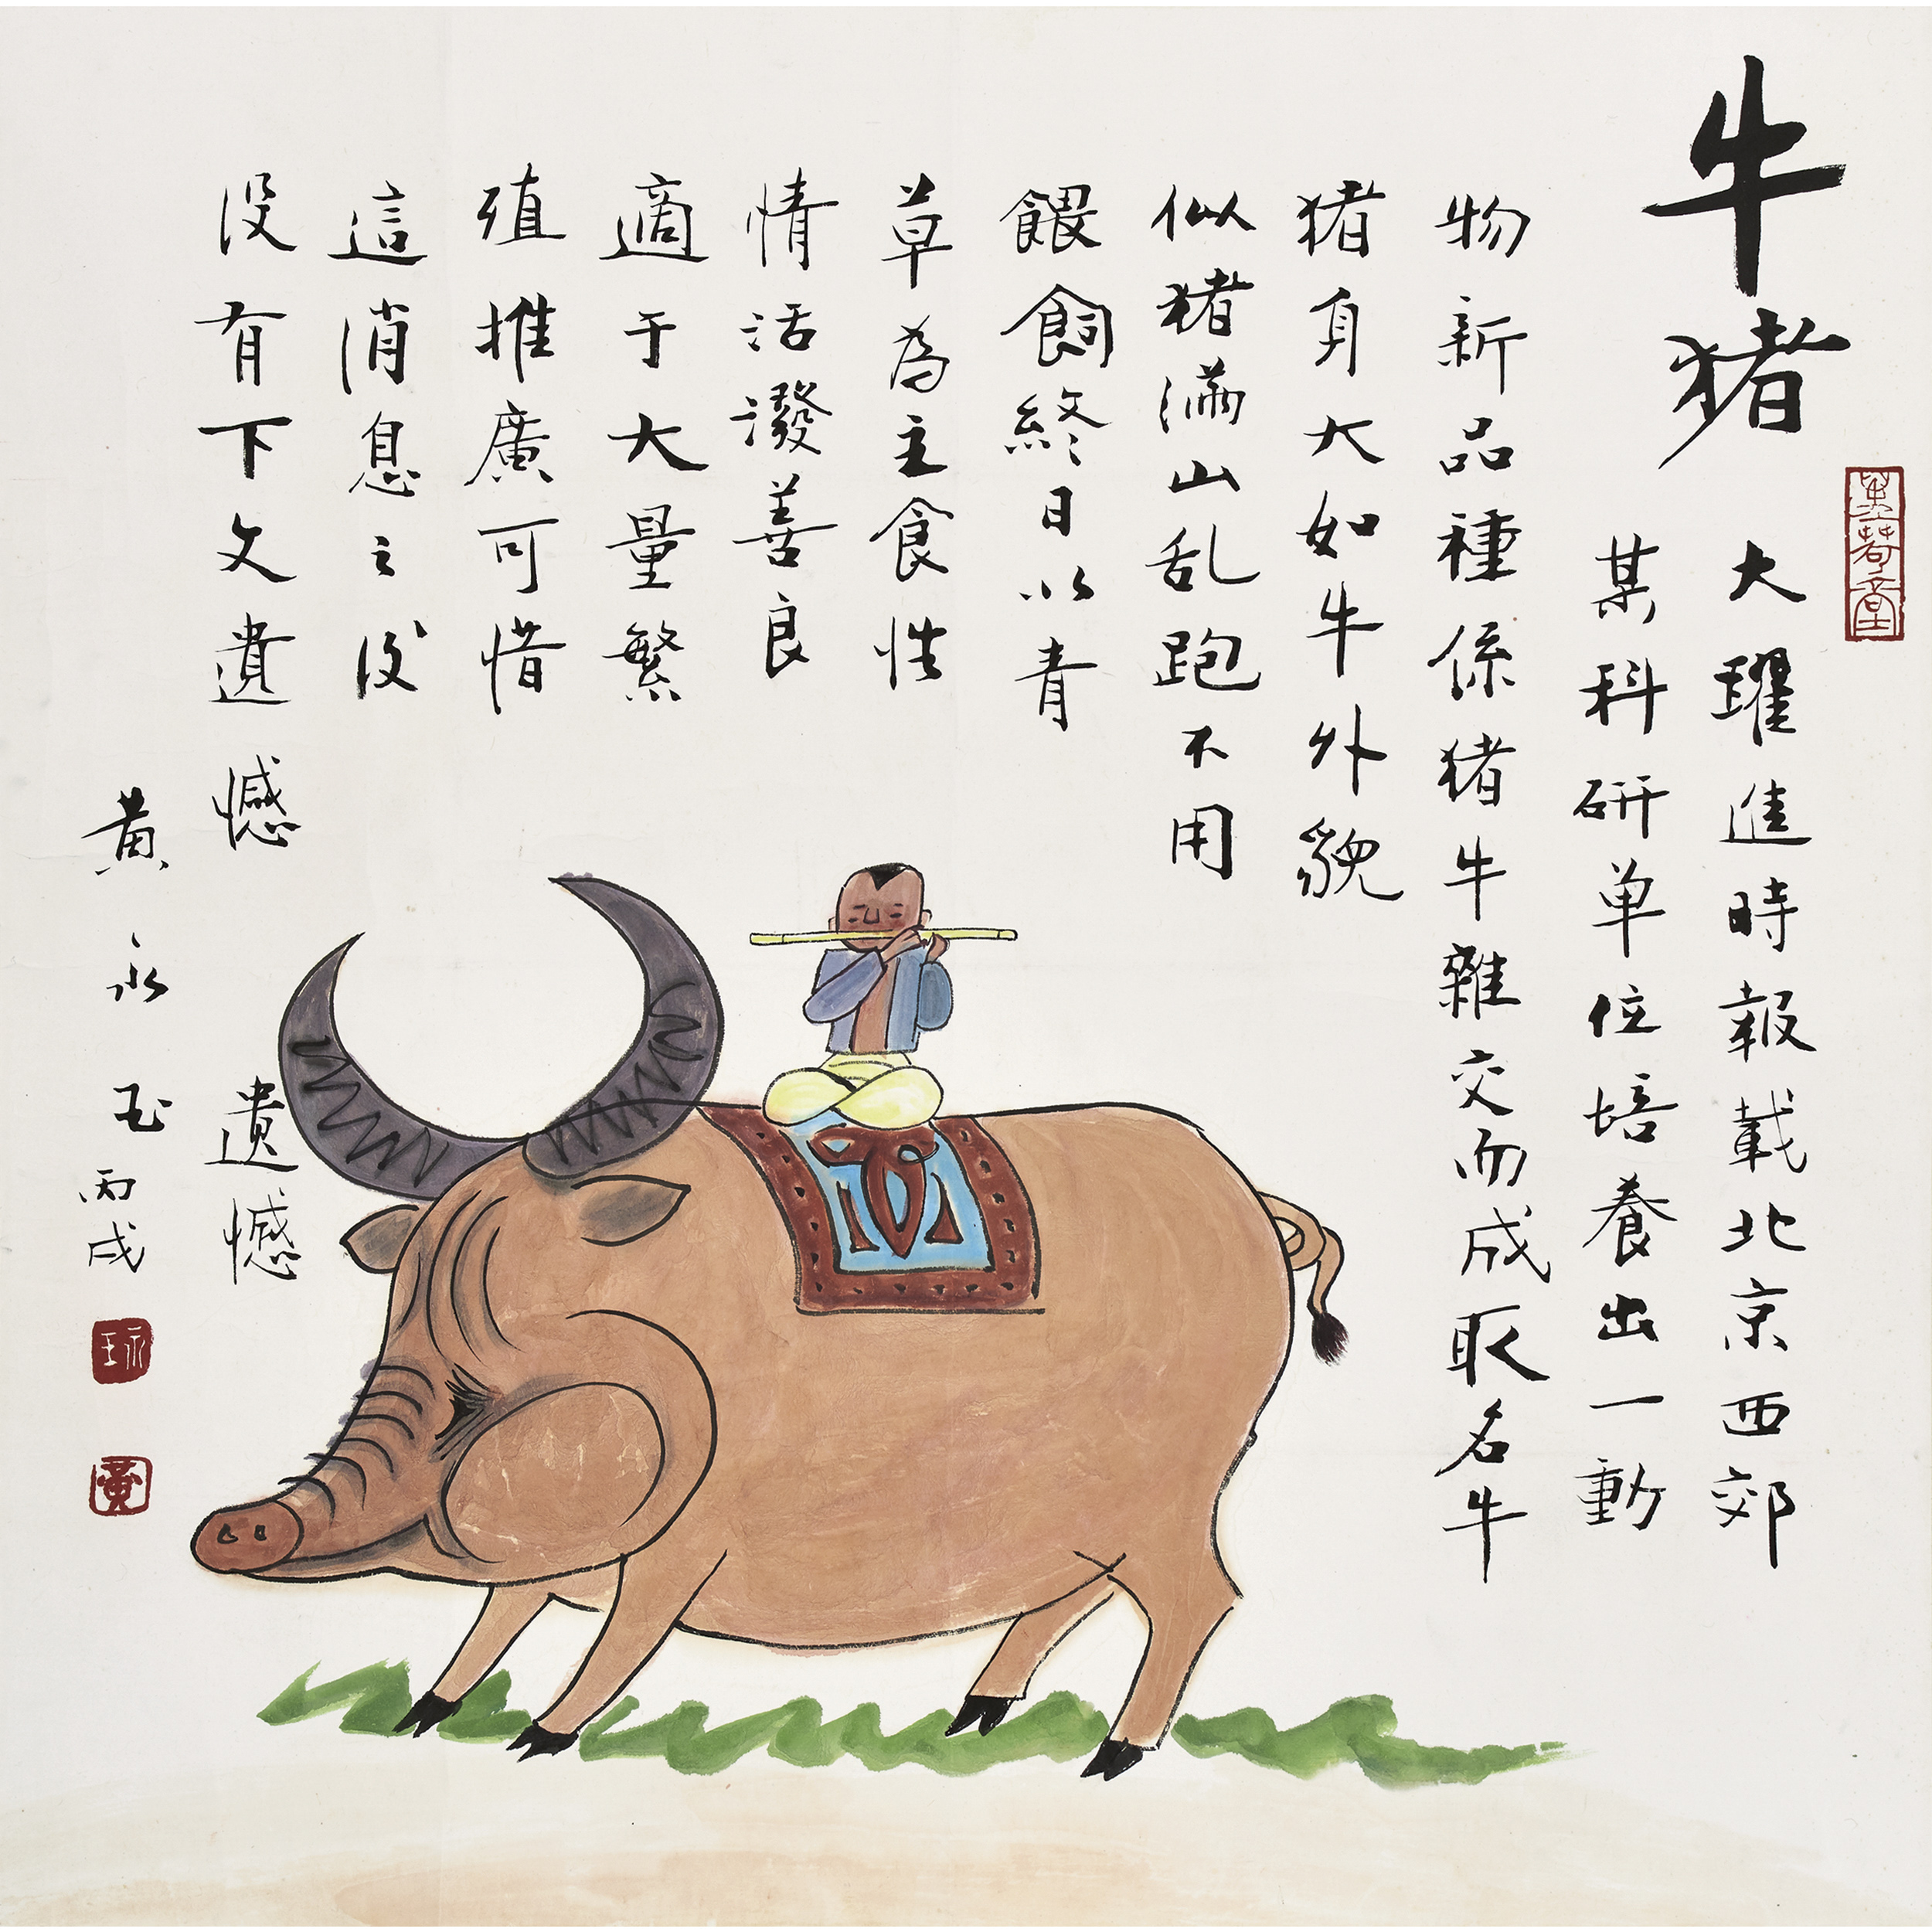 牛猪
萬荷堂
大躍進時報載北京西郊
某科研单位培養出一動
物新品種係猪牛雜交而成取名牛
猪身大如牛外貌
似猪滿山乱跑不用
餵飼終日以青
草為主食性
情活潑善良
適于大量繁
殖推廣可惜
這消息之後
没有下文遺憾 遺憾
黄永玉 丙戌
永玉
黄